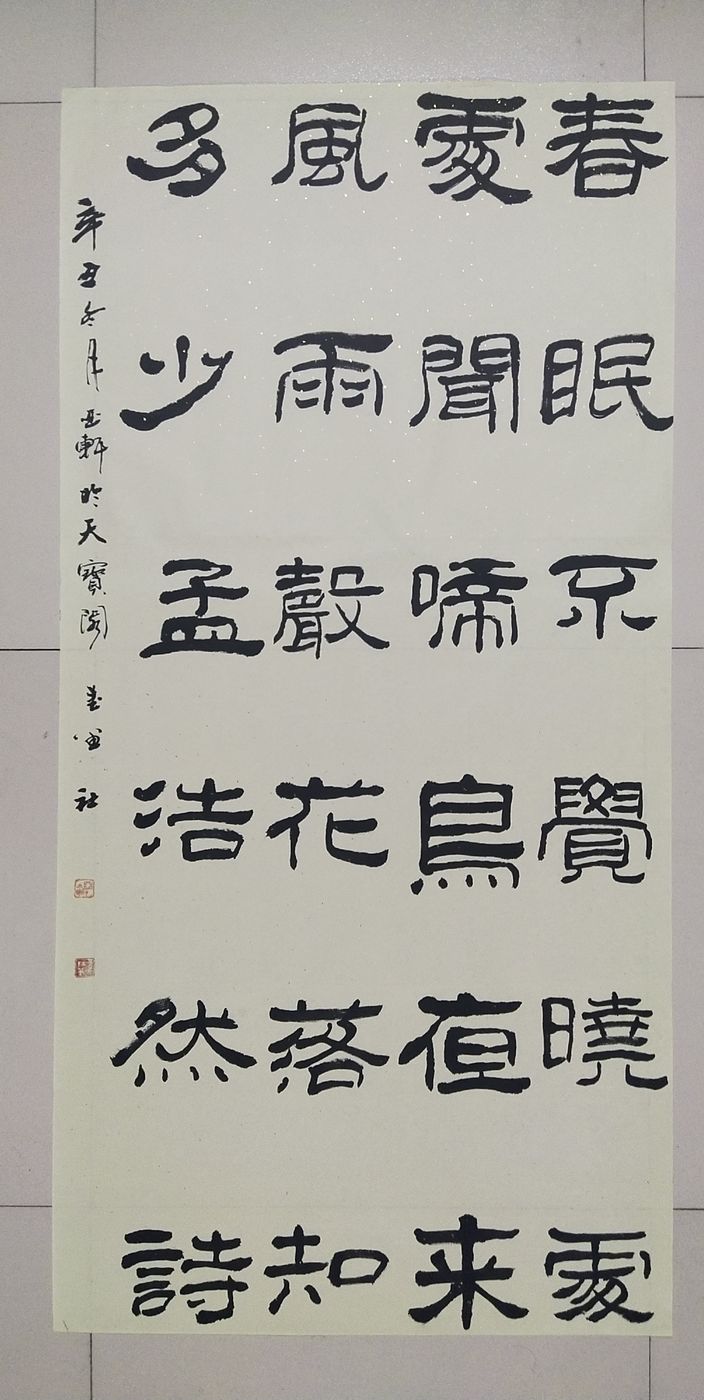 春眠不覺曉處
處聞啼鳥夜来
風雨聲花落知
多少孟浩然詩
辛丑冬月 軒於天寶閣 社